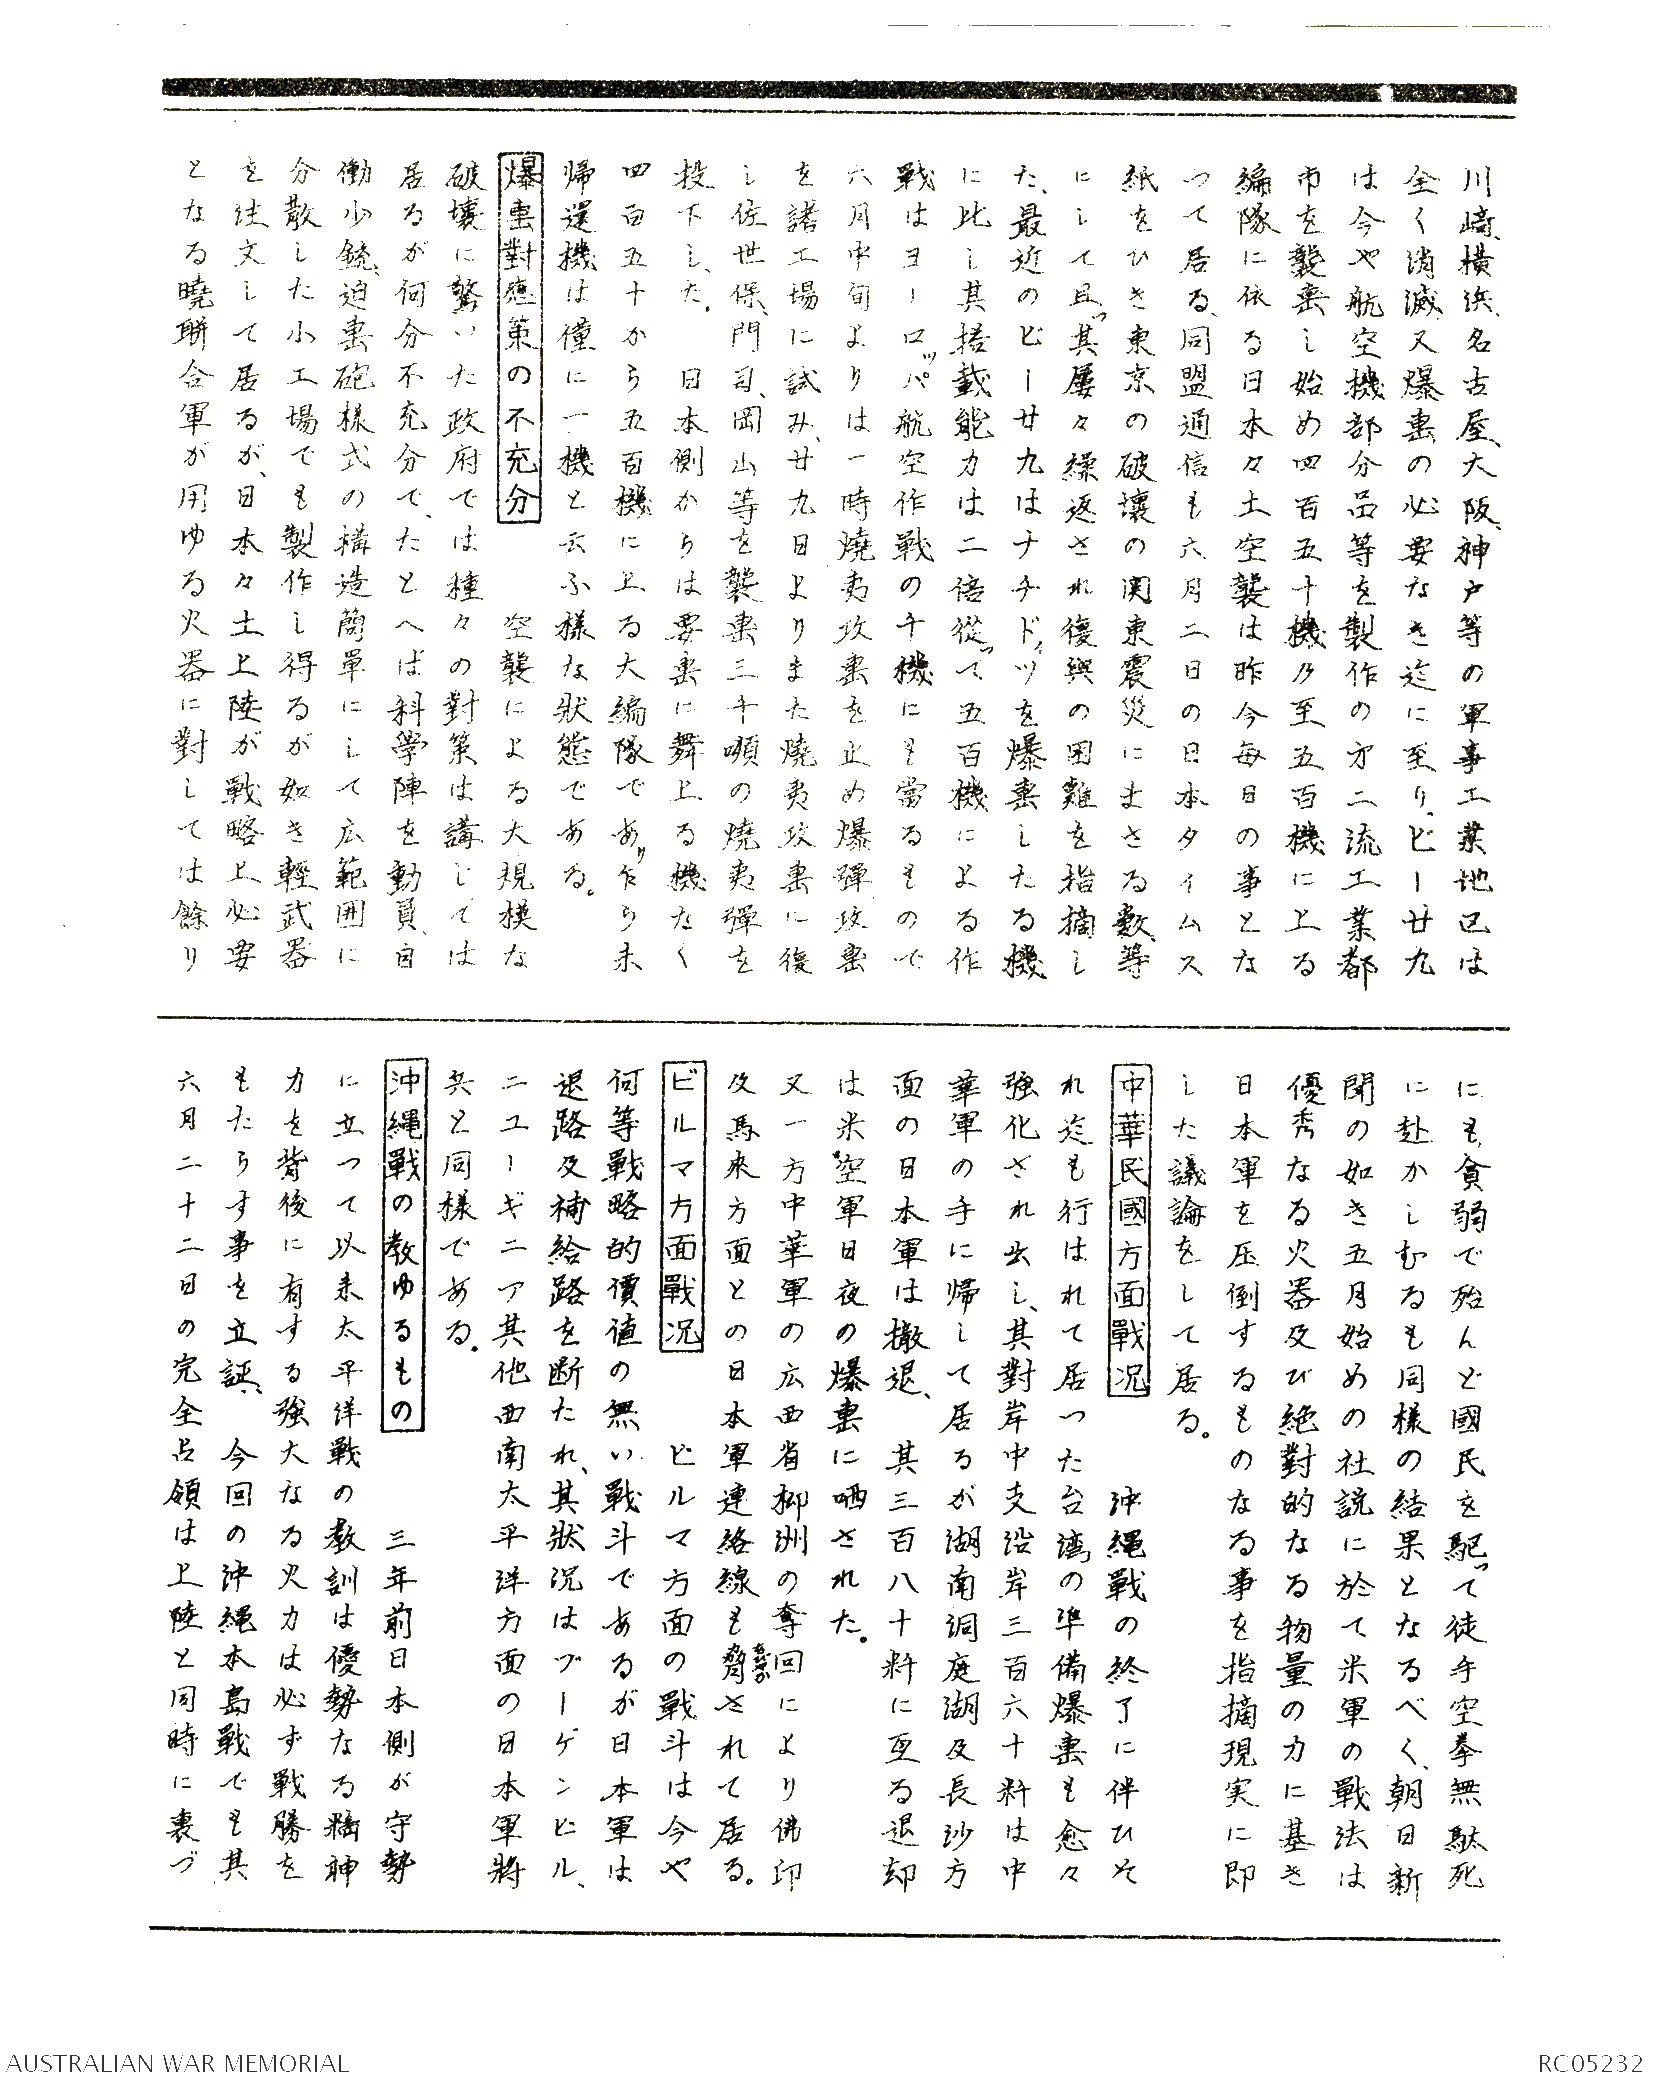 川崎、横浜、名古屋、大阪、神戸等の軍事工業地区は
全く消滅、又爆撃の必要なき迄に至り、ビー廿九
は今や航空機部分品等を製作の才二流工業都
市を襲撃し始め四百五十機乃至五百機に上る
編隊に依る日本々土空襲は昨今毎日の事とな
つて居る、同盟通信も六月二日の日本タイムス
紙をひき東京の破壊の関東震災にまさる数等
にして且つ其屡々繰返され復興の困難を指摘し
た、最近のビー廿九はナチドイツを爆撃したる機
に比し其搭載能力は二倍従つて五百機による作
戦はヨーロッパ航空作戦の千機にも當るもので
六月中旬よりは一時焼夷攻撃を止め爆弾攻撃
を諸工場に試み、廿九日よりまた焼夷攻撃に復
し佐世保、門司、岡山等を襲撃三千噸の焼夷彈を
投下した。日本側からは要撃に舞上る機なく
四百五十から五百機に上る大編隊であり乍ら未
帰還機は僅に一機と云ふ様な状態である。
爆撃對應策の不充分 空襲による大規模な
破壊に驚いた政府では種々の對策は講じては
居るが何分不充分で、たとへば科學陣を動員、自
働少銃、迫撃砲様式の構造簡單にして広範囲に
分散した小工場でも製作し得るが如き輕武器
を注文して居るが、日本々土上陸が戦略上必要
となる曉聯合軍が用ゆる火器に對しては餘り
にも貧弱で殆んど國民を駆つて徒手空拳無駄死
に赴かしむるも同様の結果となるべく、朝日新
聞の如き五月始めの社説に於て米軍の戰法は
優秀なる火器及び絶對的なる物量の力に基き
日本軍を圧倒するものなる事を指摘現実に即
した議論をして居る。
中華民國方面戰况 沖縄戰の終了に伴ひそ
れ迄も行はれて居つた台湾の準備爆撃も愈々
強化され出し、其對岸中支沿岸三百六十粁は中
華軍の手に帰して居るが湖南洞庭湖及長沙方
面の日本軍は撤退、其三百八十粁に亙る退却
は米空軍日夜の爆撃に哂された。
又一方中華軍の広西省柳洲の奪回により佛印
及馬来方面との日本軍連絡線も脅かされて居る。
ビルマ方面戰况 ビルマ方面の戦斗は今や
何等戰略的價値の無い戦斗であるが日本軍は
退路及補給路を断たれ、其狀况はブーゲンビル、
ニユーギニア其他西南太平洋方面の日本軍將
兵と同様である。
沖縄戰の教ゆるもの 三年前日本側が守勢
に立つて以来太平洋戦の教訓は優勢なる精神
力を背後に有する強大なる火力は必ず戰勝を
もたらす事を立証、今回の沖縄本島戰でも其
六月二十二日の完全占領は上陸と同時に裏づ
AUSTRALIAN WAR MEMORIAL
RC05232